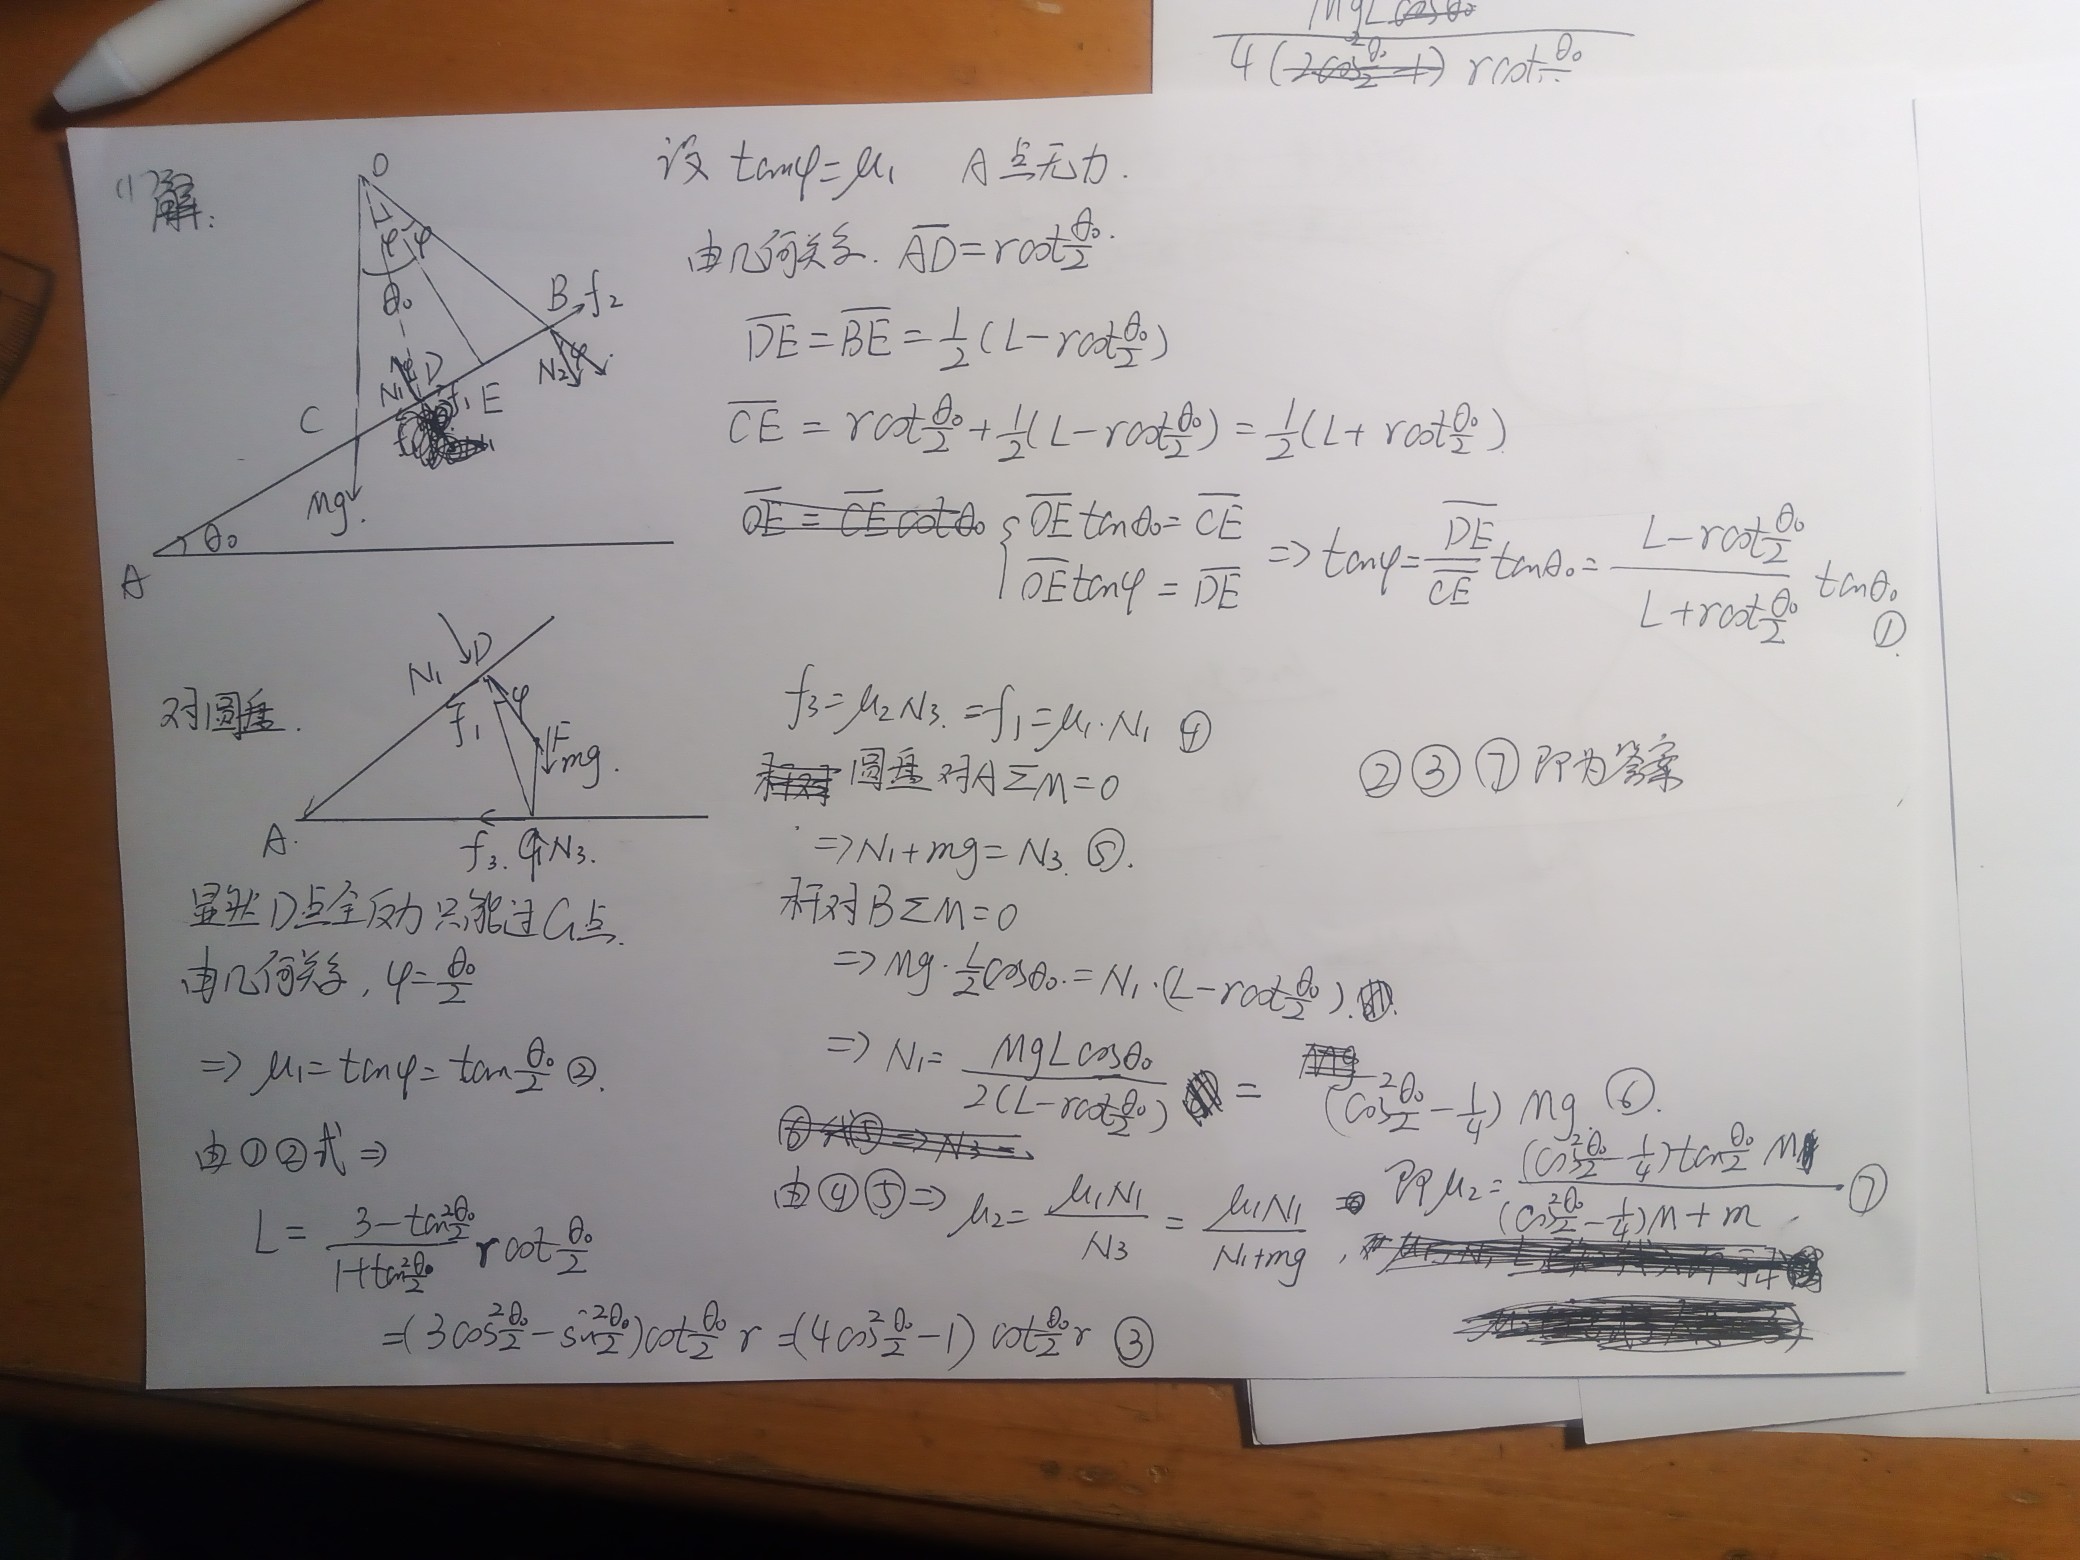 MgL cosθ₀
4(2cos²θ₀/2 - 1) r cot θ₀/2
(1) 解:
O
φ φ
θ₀
B f₂
N₁ D
N₂ φ
f₁ E
C
Mg.
θ₀
A
设 tanφ=μ₁ A点无力.
由几何关系. AD=rcotθ₀/2.
DE=BE=1/2(L-rcotθ₀/2)
CE=rcotθ₀/2+1/2(L-rcotθ₀/2)=1/2(L+rcotθ₀/2)
OE=CEcotθ₀ { OEtanθ₀=CE
OEtanφ=DE
=> tanφ=DE/CE tanθ₀=(L-rcotθ₀/2)/(L+rcotθ₀/2) tanθ₀ ①.
对圆盘.
N₁ D
f₁ φ
F
mg.
A.
f₃. G N₃.
显然D点全反力只能过G点.
由几何关系, φ=θ₀/2
=> μ₁=tanφ=tanθ₀/2 ②.
由①②式=>
L=(3-tan²θ₀/2)/(1+tan²θ₀/2) rcotθ₀/2
=(3cos²θ₀/2-sin²θ₀/2)cotθ₀/2 r=(4cos²θ₀/2-1)cotθ₀/2 r ③
f₃=μ₂N₃.=f₁=μ₁·N₁ ④
圆盘对AΣM=0
=>N₁+mg=N₃. ⑤.
杆对BΣM=0
=>Mg·L/2cosθ₀.=N₁·(L-rcotθ₀/2).
=>N₁=MgLcosθ₀/2(L-rcotθ₀/2) = (cos²θ₀/2-1/4)Mg. ⑥.
⑥代⑤=>N₃=
由④⑤=> μ₂=μ₁N₁/N₃=μ₁N₁/(N₁+mg), 即μ₂=(cos²θ₀/2-1/4)tanθ₀/2 M/((cos²θ₀/2-1/4)M+m) ⑦
②③⑦即为答案